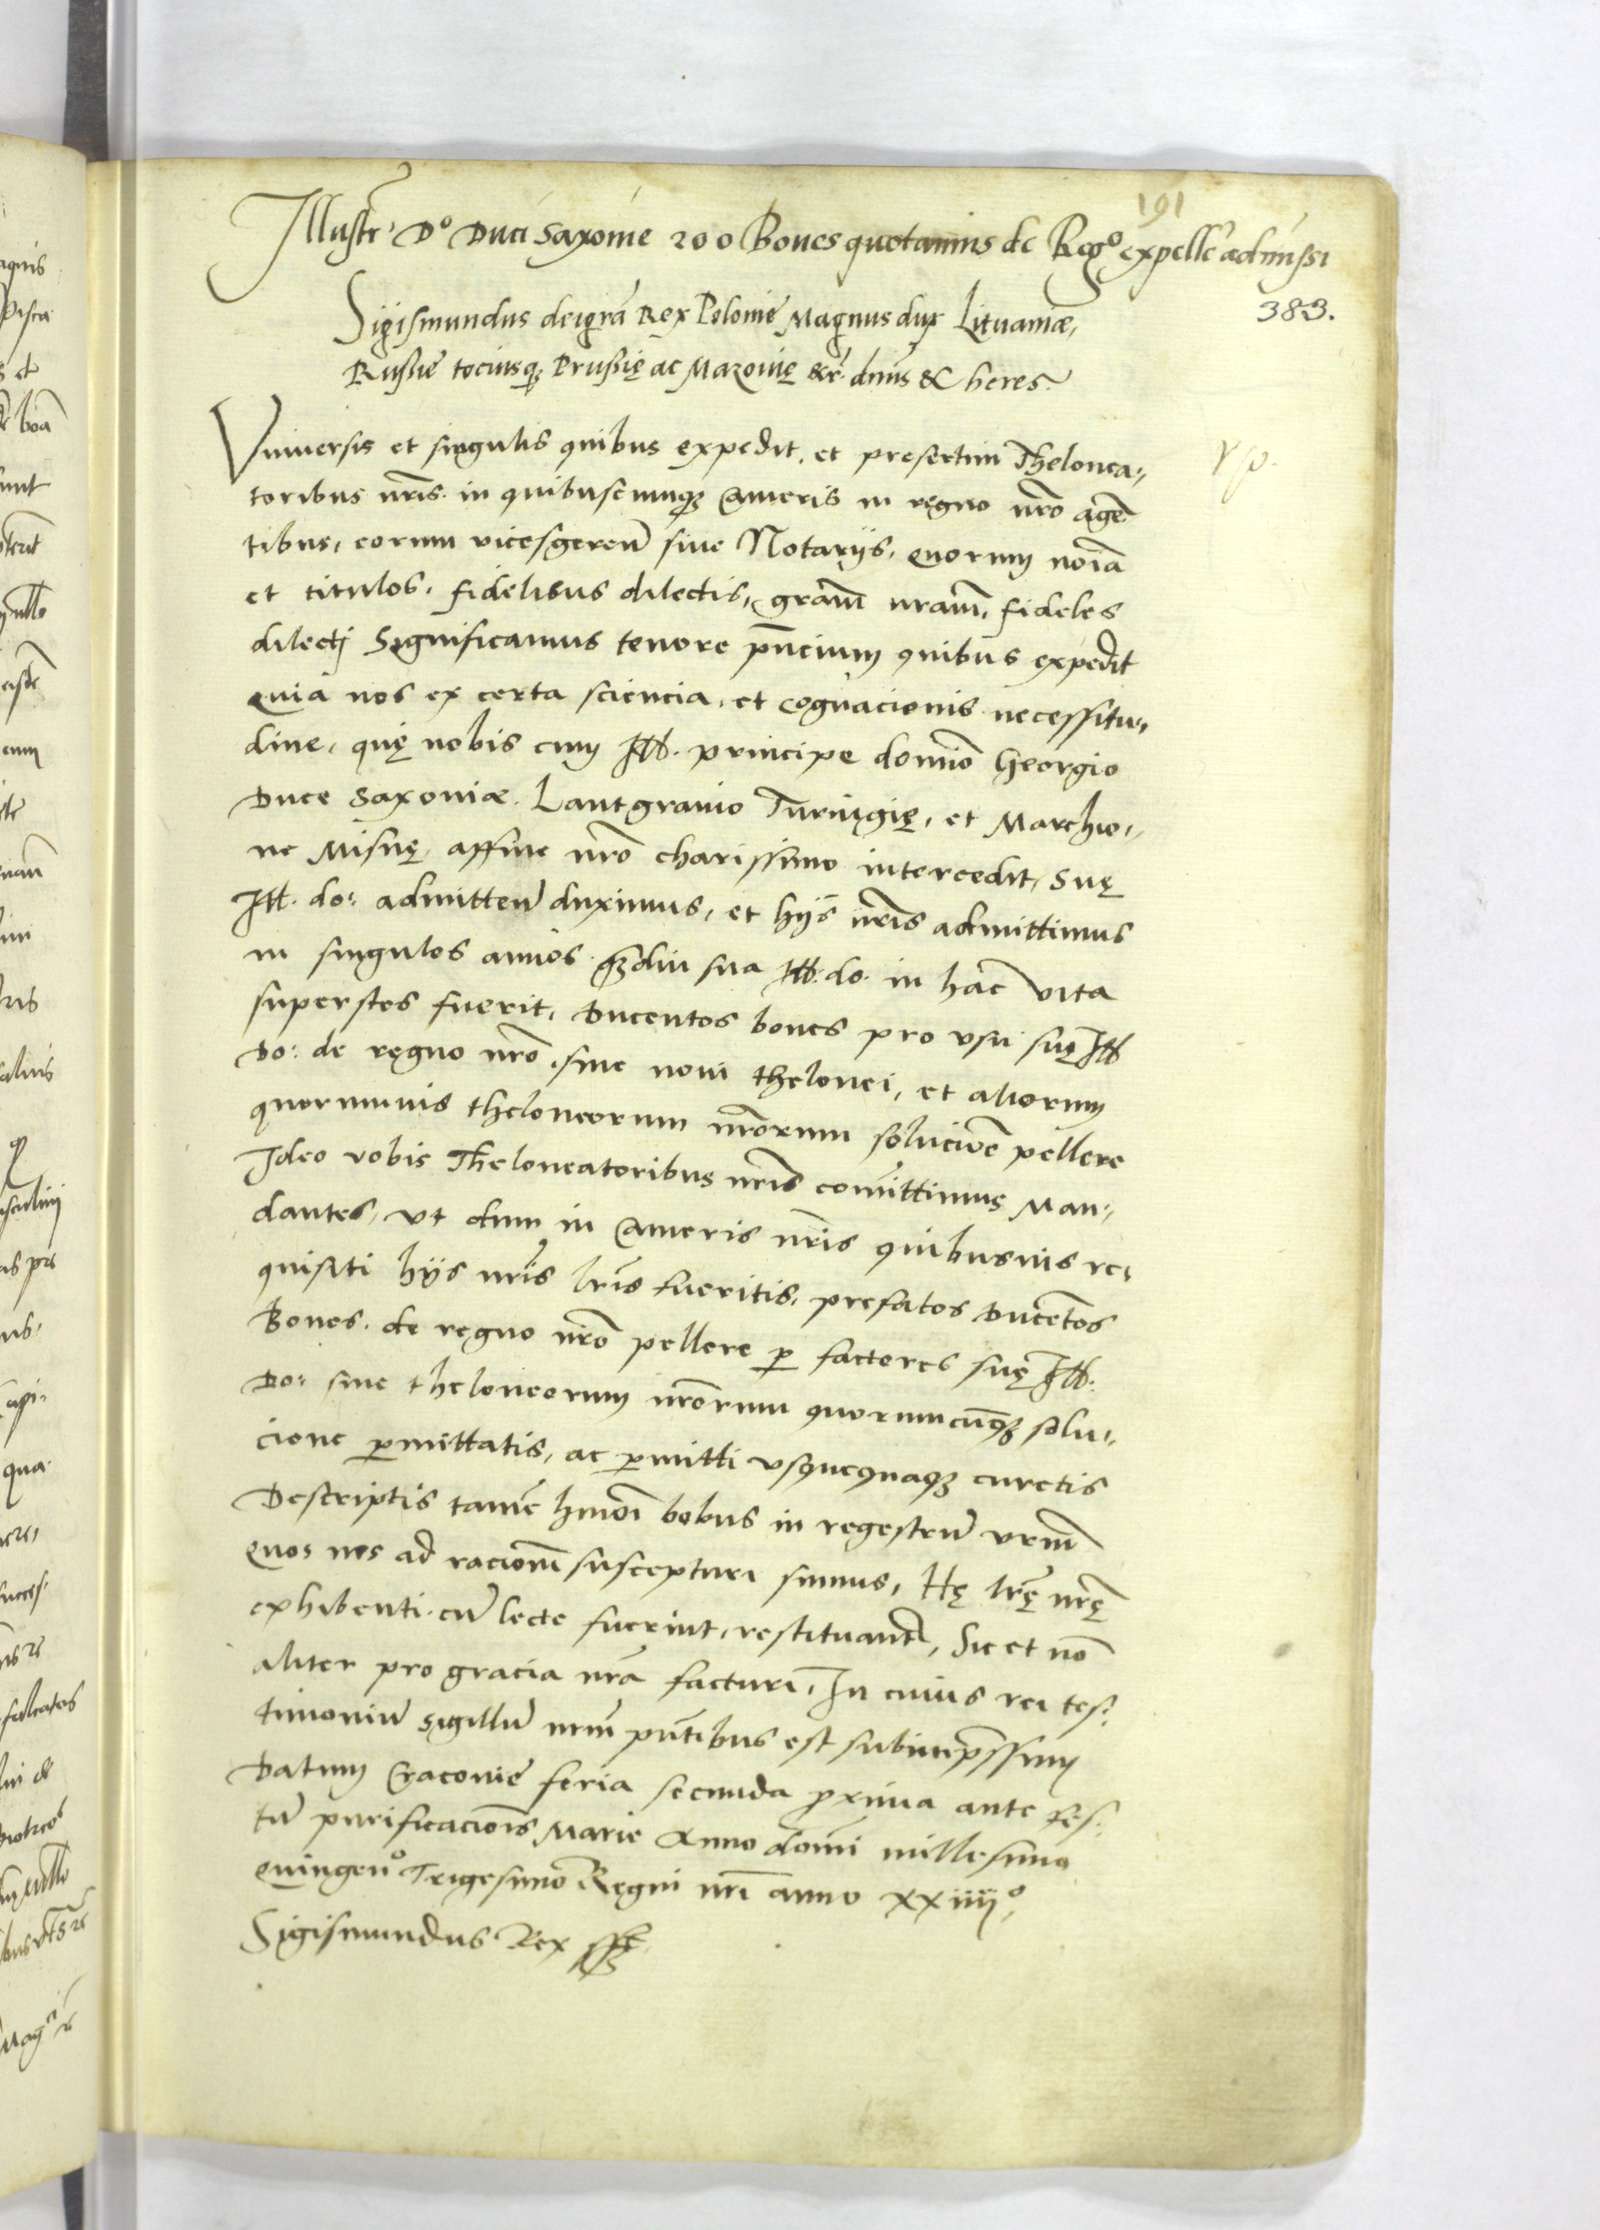 191
Illustr. Do Duci Saxonie 200 Boues quotannis de Rego expelle admissi
383.
Sigismundus dei gra Rex Polonie Magnus dux Lituaniæ,
Russie tociusq Prussię ac Mazouię &c dnus & heres
Vniuersis et singulis quibus expedit, et presertim Thelonea,
toribus nris in quibuscumq Cameris in regno nro agen
tibus, eorum vicesgeren siue Notarijs, quorum noia
et titulos, fidelibus dilectis, gram nram, fideles
dilecti Significamus tenore pncium quibus expedit
Quia nos ex certa sciencia, et cognacionis necessitu,
dine, quę nobis cum Ill. principe domio Georgio
Duce Saxoniæ Lantgrauio Turingię, et Marchio,
ne Misnę affine nro charissimo intercedit, Suę
Ill. do: admitten duximus, et hijs nris admittimus
in singulos annos qdiu sua Ill. do. in hac vita
superstes fuerit, Ducentos boues pro vsu suę Ill
Do: de regno nro, sine noui thelonei, et aliorum
quorumuis theloneorum nrorum solucioe pellere
Ideo vobis Theloneatoribus nris comittimus Man,
dantes, vt dum in Cameris nris quibusuis re,
quisiti hijs nris lris fueritis, prefatos Ducetos
Boues de regno nro pellere p factores suę Ill.
Do: sine theloneorum nrorum quorumcuq solu,
cione pmittatis, ac pmitti vsquequaq curetis
Descriptis tame hmoi bobus in regestru vrm
Quos nos ad racionem suscepturi sumus, Hę lrę nrę
exhibenti cu lecte fuerint, restituant, Sic et no
aliter pro gracia nra facturi, In cuius rei tes
timoniu sigillu nrm pntibus est subimpssum
Datum Cracouie feria secunda pxima ante Fes
tu purificacionis Marie Anno domi millesimo
Quingeno Trigesimo Regni nri anno xxiiijo,
Sigismundus Rex sst